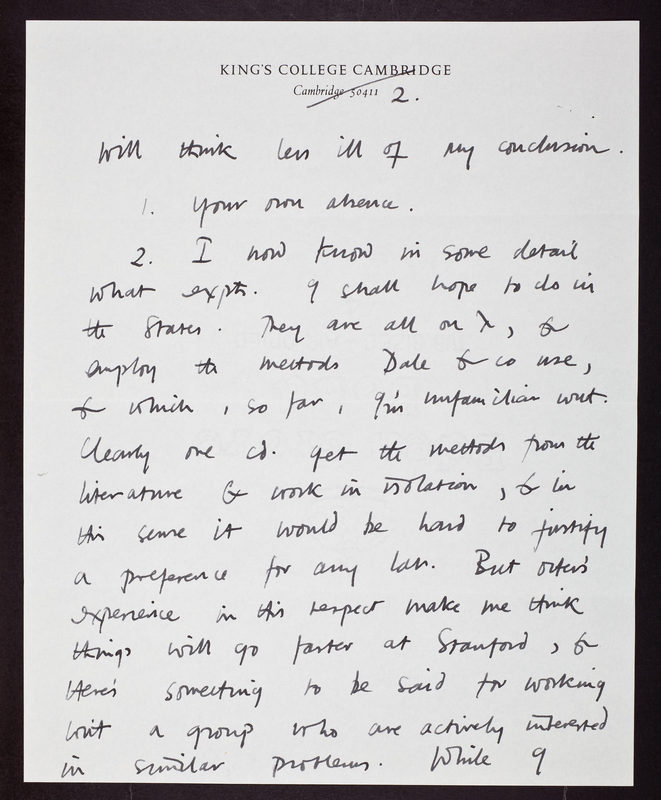 KING'S COLLEGE CAMBRIDGE
Cambridge 50411
2.
will think less ill of my conclusion.
1. Your own absence.
2. I now know in some detail
what expts. I shall hope to do in
the States. They are all on λ, &
employ the methods Dale & co use,
& which, so far, I'm unfamiliar with.
Clearly one cd. get the methods from the
literature & work in isolation, & in
this sense it would be hard to justify
a preference for any lab. But others
experience in this respect make me think
things will go faster at Stanford, &
there's something to be said for working
with a group who are actively interested
in similar problems. While I